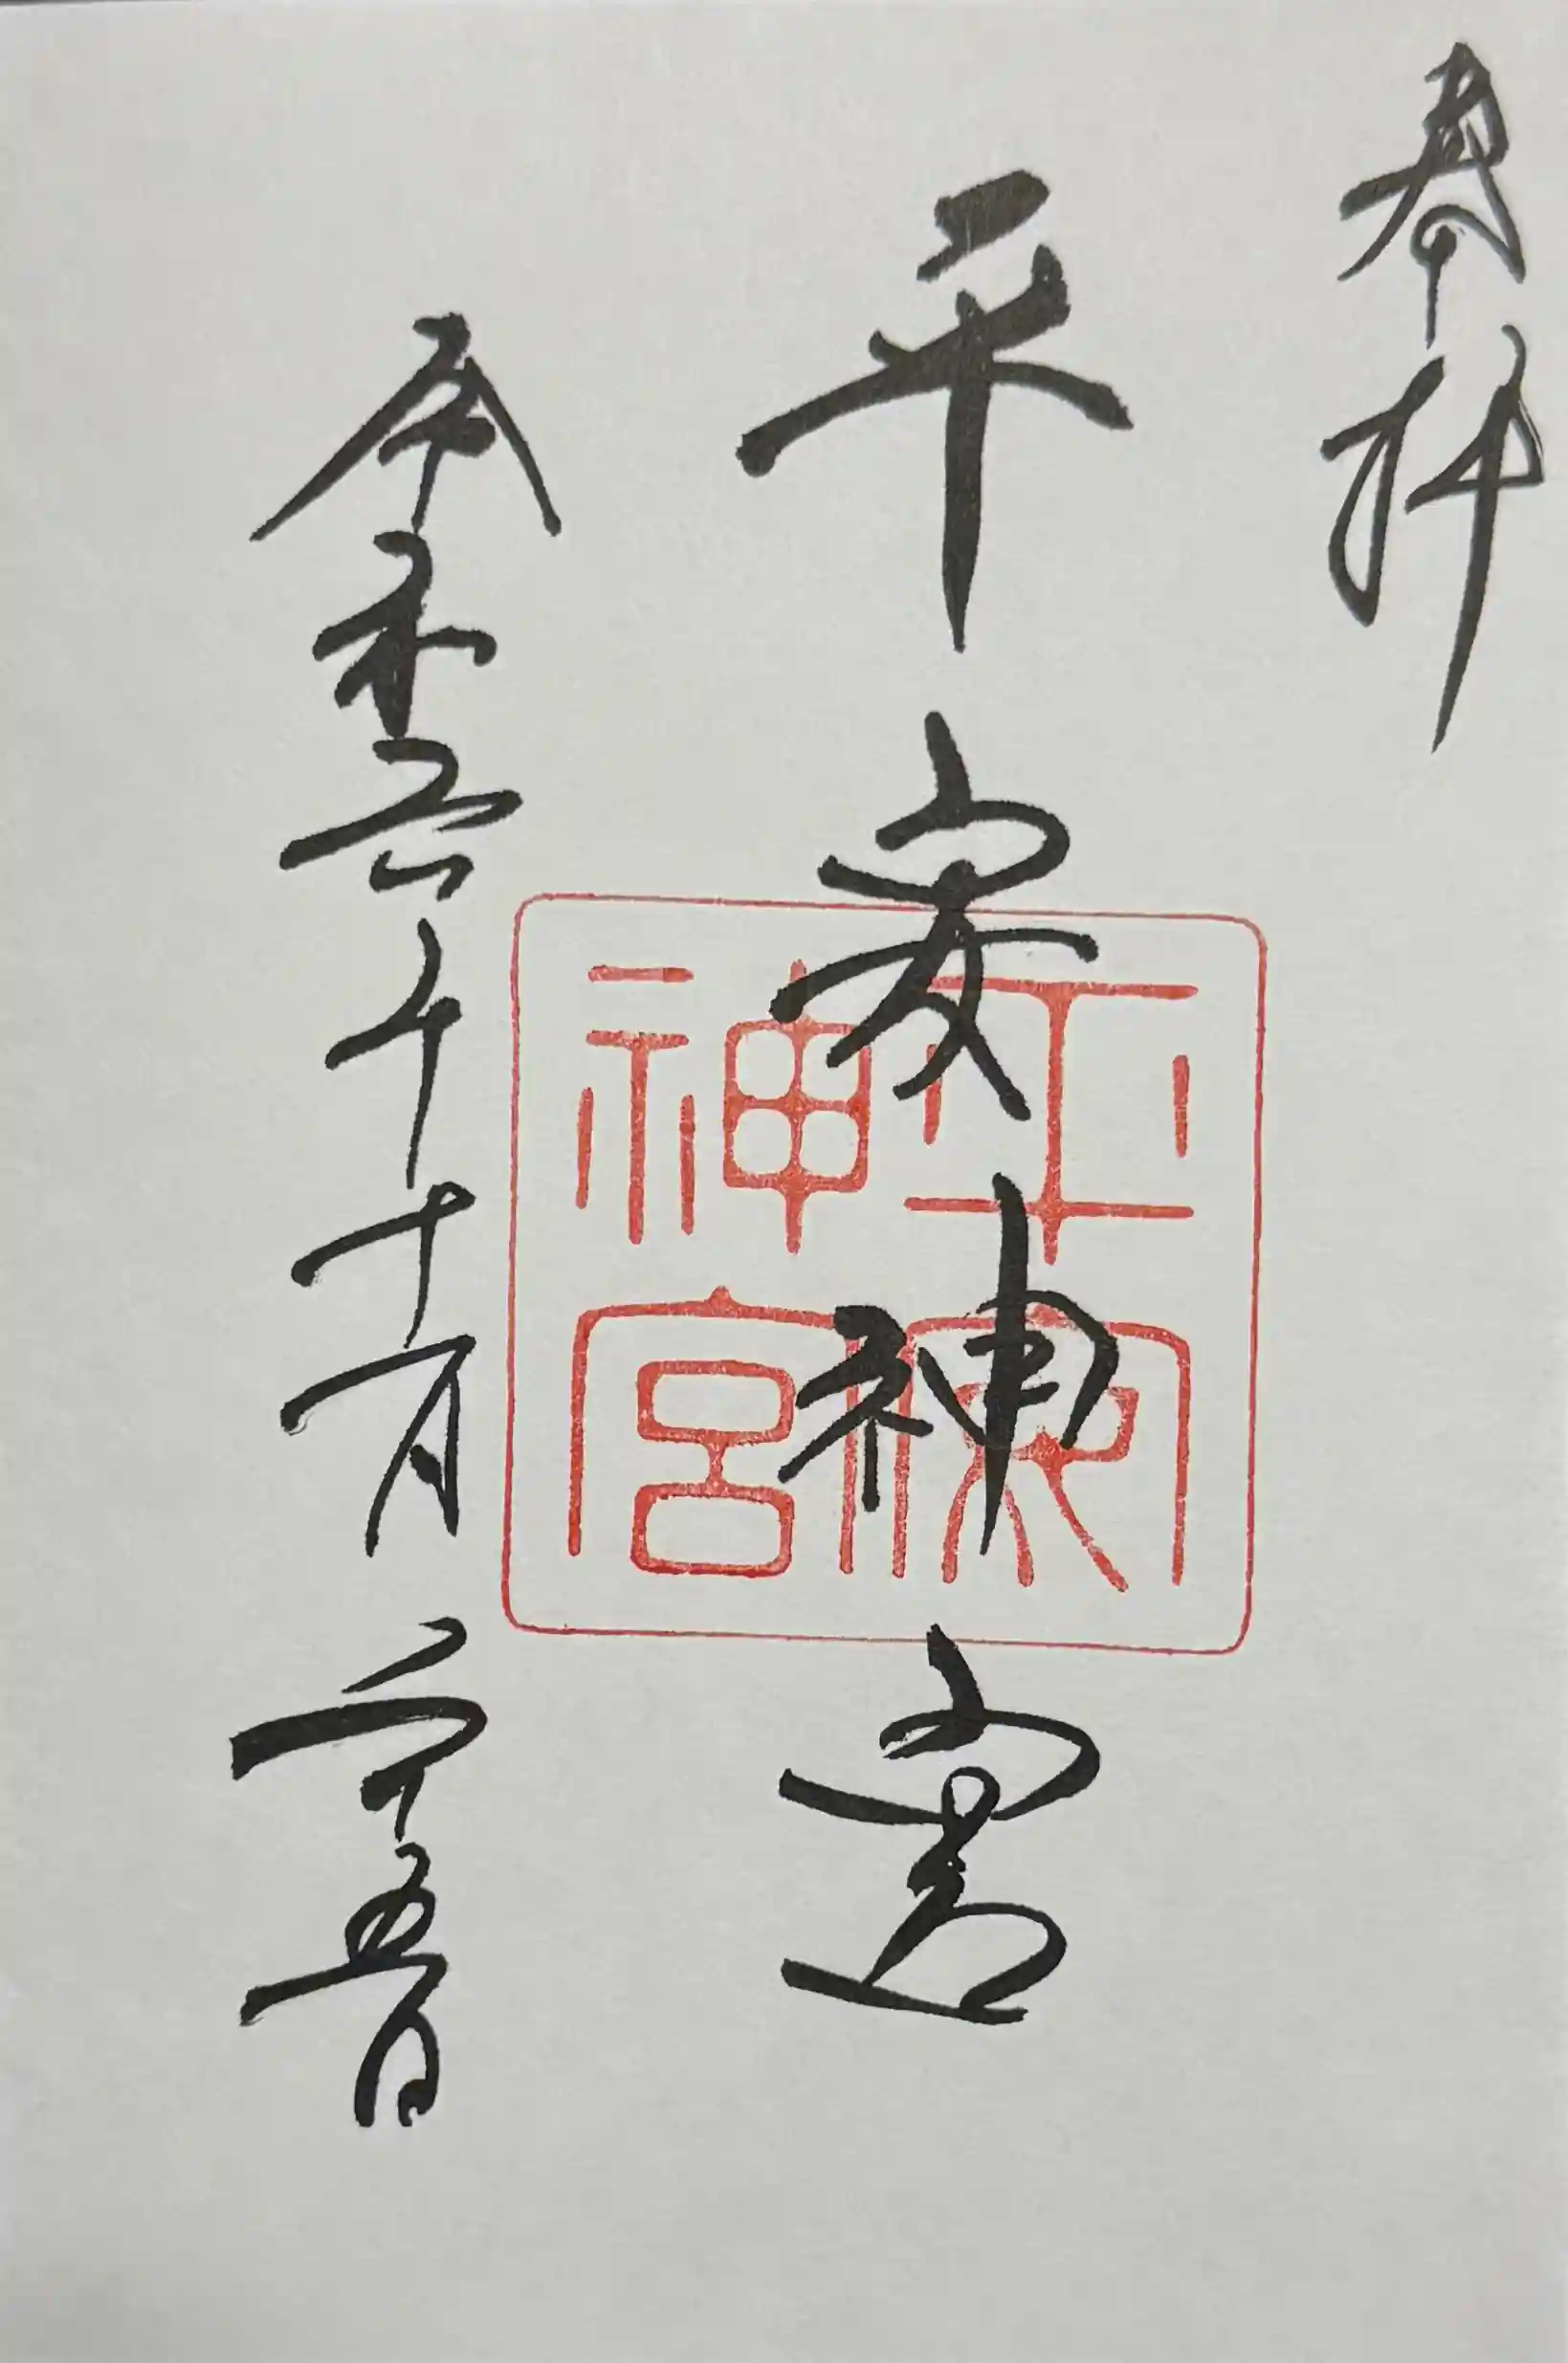 奉拝
平安神宮
平安神宮
令和六年十月二十五日